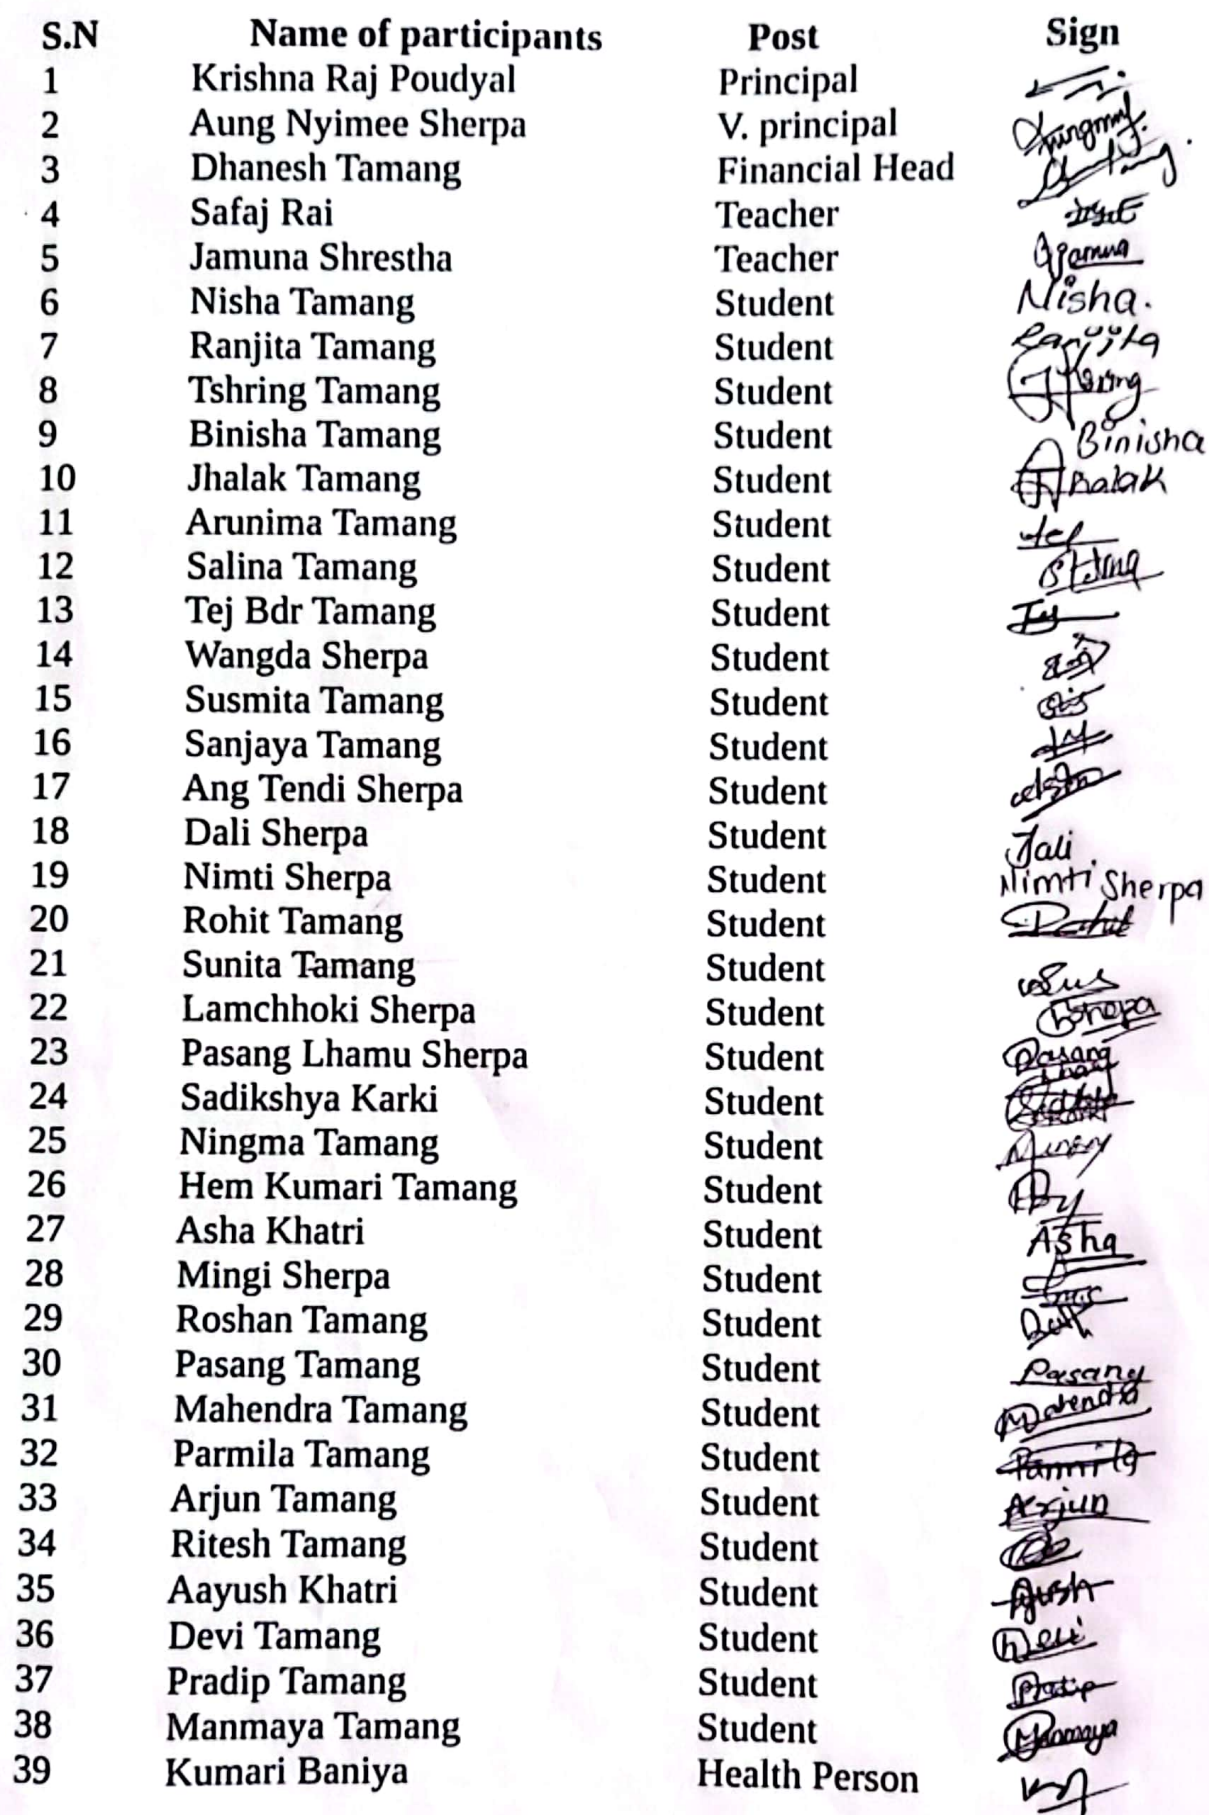 S.N Name of participants Post Sign
1 Krishna Raj Poudyal Principal
2 Aung Nyimee Sherpa V. principal
3 Dhanesh Tamang Financial Head
4 Safaj Rai Teacher
5 Jamuna Shrestha Teacher
6 Nisha Tamang Student Nisha.
7 Ranjita Tamang Student Ranjita
8 Tshring Tamang Student
9 Binisha Tamang Student Binisha
10 Jhalak Tamang Student Jhalak
11 Arunima Tamang Student
12 Salina Tamang Student
13 Tej Bdr Tamang Student
14 Wangda Sherpa Student
15 Susmita Tamang Student
16 Sanjaya Tamang Student
17 Ang Tendi Sherpa Student
18 Dali Sherpa Student Dali
19 Nimti Sherpa Student Nimti Sherpa
20 Rohit Tamang Student
21 Sunita Tamang Student
22 Lamchhoki Sherpa Student
23 Pasang Lhamu Sherpa Student Pasang
24 Sadikshya Karki Student
25 Ningma Tamang Student
26 Hem Kumari Tamang Student
27 Asha Khatri Student Asha
28 Mingi Sherpa Student
29 Roshan Tamang Student
30 Pasang Tamang Student Pasang
31 Mahendra Tamang Student Mahendra
32 Parmila Tamang Student Parmila
33 Arjun Tamang Student Arjun
34 Ritesh Tamang Student
35 Aayush Khatri Student
36 Devi Tamang Student Devi
37 Pradip Tamang Student Pradip
38 Manmaya Tamang Student Manmaya
39 Kumari Baniya Health Person